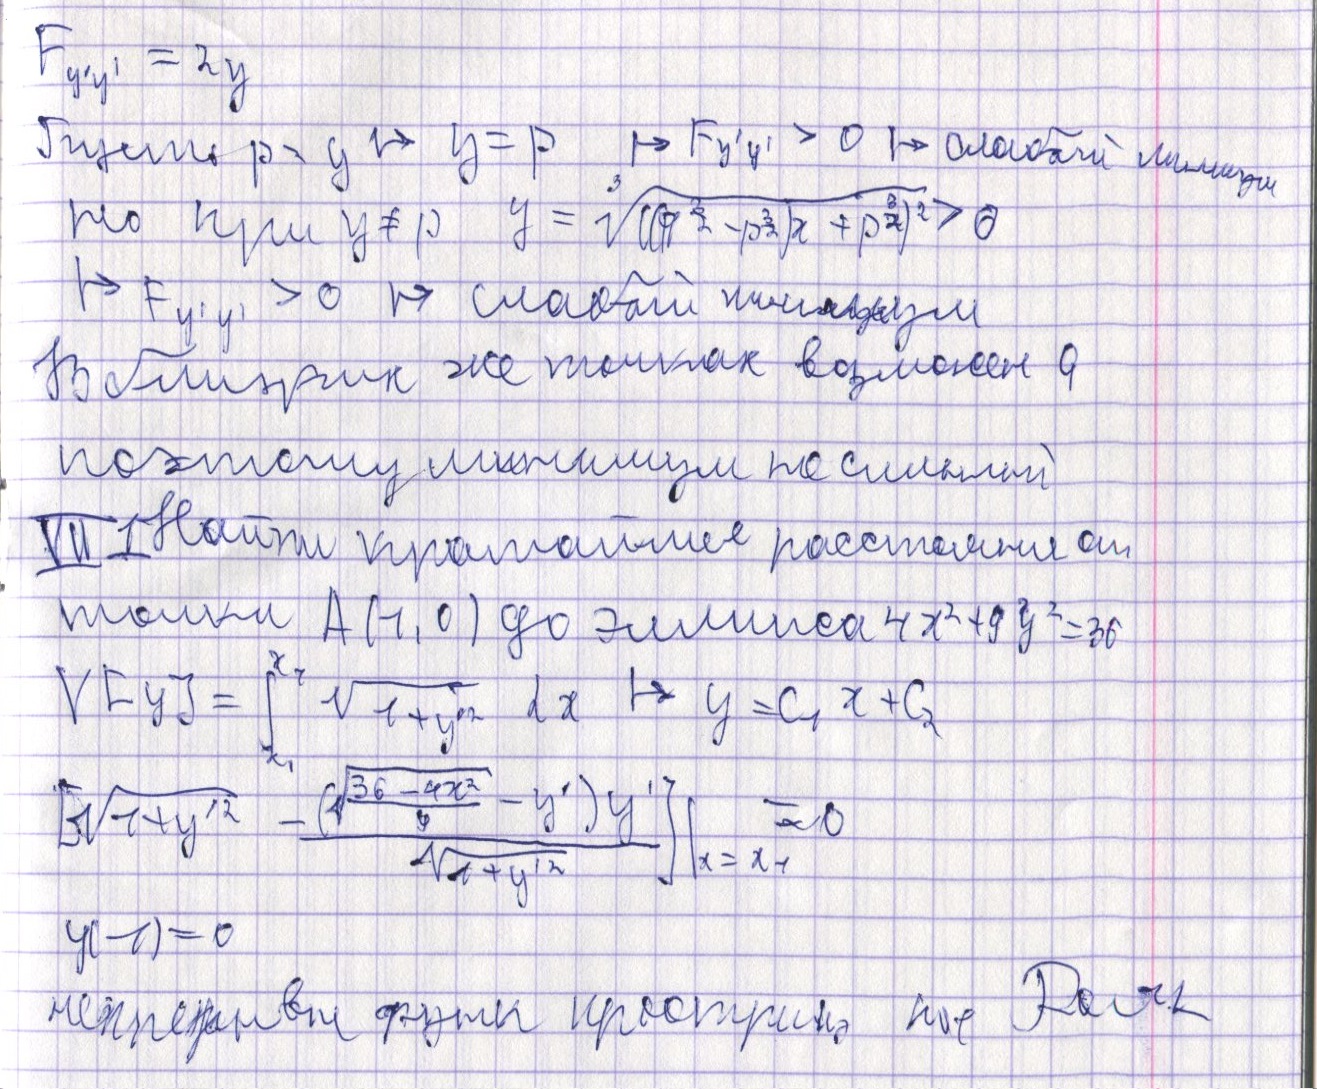 F_{y'y'} = 2y
Пусть p = q ↦ y = p ↦ F_{y'y'} > 0 ↦ слабый минимум
но при y ≠ p y = ∛(((q^{3/2} - p^{3/2})x + p^{3/2})^2) > 0
↦ F_{y'y'} > 0 ↦ слабый минимум
В же точках возможен 0
поэтому минимум не сильный
VII 1 Найти кратчайшее расстояние от
точки A(-1, 0) до эллипса 4x²+9y²=36
V[y] = ∫_{x_1}^{x_2} √(1+y'²) dx ↦ y = C₁x + C₂
[√(1+y'²) - (√((36-4x²)/9) - y')y' / √(1+y'²)]|_{x=x_1} = 0
y(-1) = 0